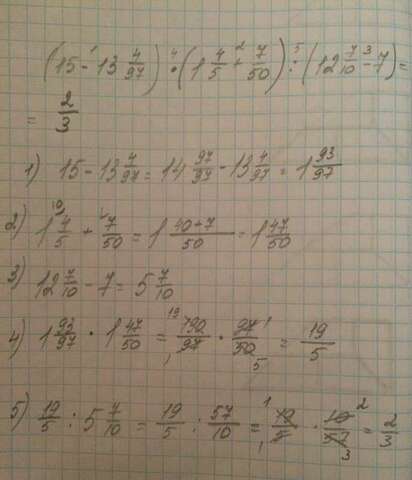 (15 -¹ 13 4/97) •⁴ (1 4/5 +² 7/50) :⁵ (12 7/10 -³ 7) =
= 2/3
1) 15 - 13 4/97 = 14 97/97 - 13 4/97 = 1 93/97
2) 1 ¹⁰4/5 + ¹7/50 = 1 40+7/50 = 1 47/50
3) 12 7/10 - 7 = 5 7/10
4) 1 93/97 • 1 47/50 = ¹⁹190/97₁ • 97¹/50₅ = 19/5
5) 19/5 : 5 7/10 = 19/5 : 57/10 = ¹19/5₁ • 10²/57₃ = 2/3